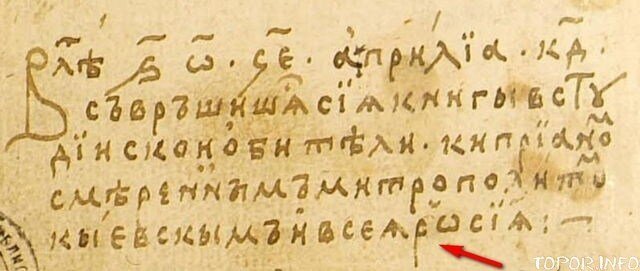 В лⷮѣ ҂ѕ҃ ѡ҃ . ч҃е . априлїа . к҃д .
съвръшишѧⷭ сїѧ книгы в сту
дїискои обитѣли . кипрїаноⷨ
смѣреннымъ митрополитоⷨ
кыевскымъ и всеѧ рѡсїѧ :—
TOPOR.INFO